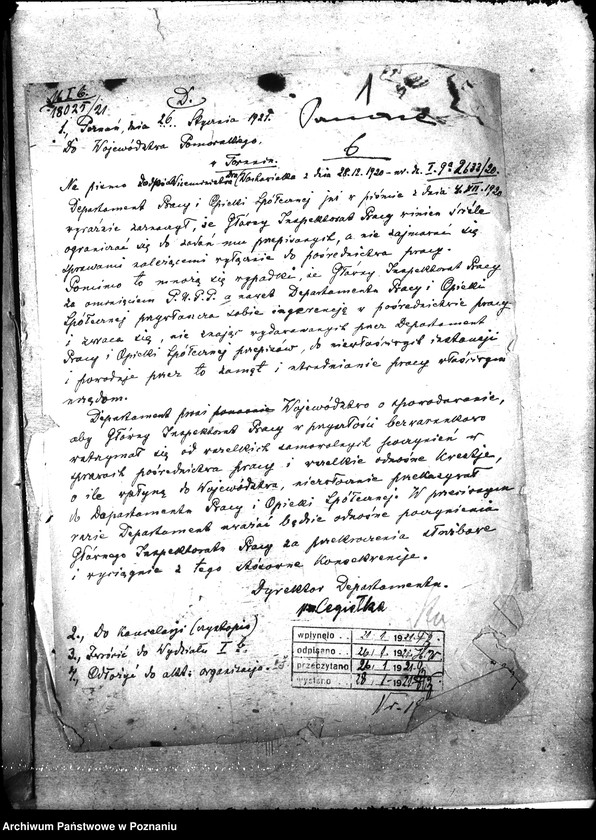 M I 6.
18025/21.
D.
1
1, Poznań, dnia 26. Stycznia 1921.
Do Województwa Pomorskiego,
w Toruniu.
6
Na pismo z dnia 28.12.1920 - nr. dz. I. 9a 2633/20.
Departament Pracy i Opieki Społecznej już w piśmie z dnia XII. 1920
wyraźnie zaznaczył, że Główny Inspektorat Pracy winien ściśle
ograniczać się do zadań mu przepisanych, a nie zajmować się
sprawami należącemi wyłącznie do pośrednictwa pracy.
Pomimo to mnożą się wypadki, że Główny Inspektorat Pracy
za ominięciem P.U.P.P. a nawet Departamentu Pracy i Opieki
Społecznej przywłaszcza sobie ingerencję w pośrednictwie pracy
i zwraca się, nie znając wydawanych przez Departament
Pracy i Opieki Społecznej przepisów, do niewłaściwych instancji
i powoduje przez to zamęt i utrudnianie pracy właściwym
urzędom.
Departament prosi Województwo o spowodowanie,
aby Główny Inspektorat Pracy w przyszłości bezwarunkowo
wstrzymał się od wszelkich samowolnych poczynań w
sprawach pośrednictwa pracy i wszelkie odnośne kwestje,
o ile wpłyną do Województwa, niezwłocznie przekazywał
do Departamentu Pracy i Opieki Społecznej. W przeciwnym
razie Departament uważać będzie odnośne poczynania
Głównego Inspektoratu Pracy za przekroczenia służbowe
i wyciągnie z tego stosowne konsekwencje.
Dyrektor Departamentu.
Cegiełka
2., Do Kancelarji (czystopis)
3., Zwrócić do Wydziału I 6.
4., Odłożyć do akt: organizacja.
wpłynęło . . 21. 1. 1921
odpisano . . 26. 1. 1921
przeczytano 26. 1. 1921
wysłano . . 28. 1. 1921
Archiwum Państwowe w Poznaniu